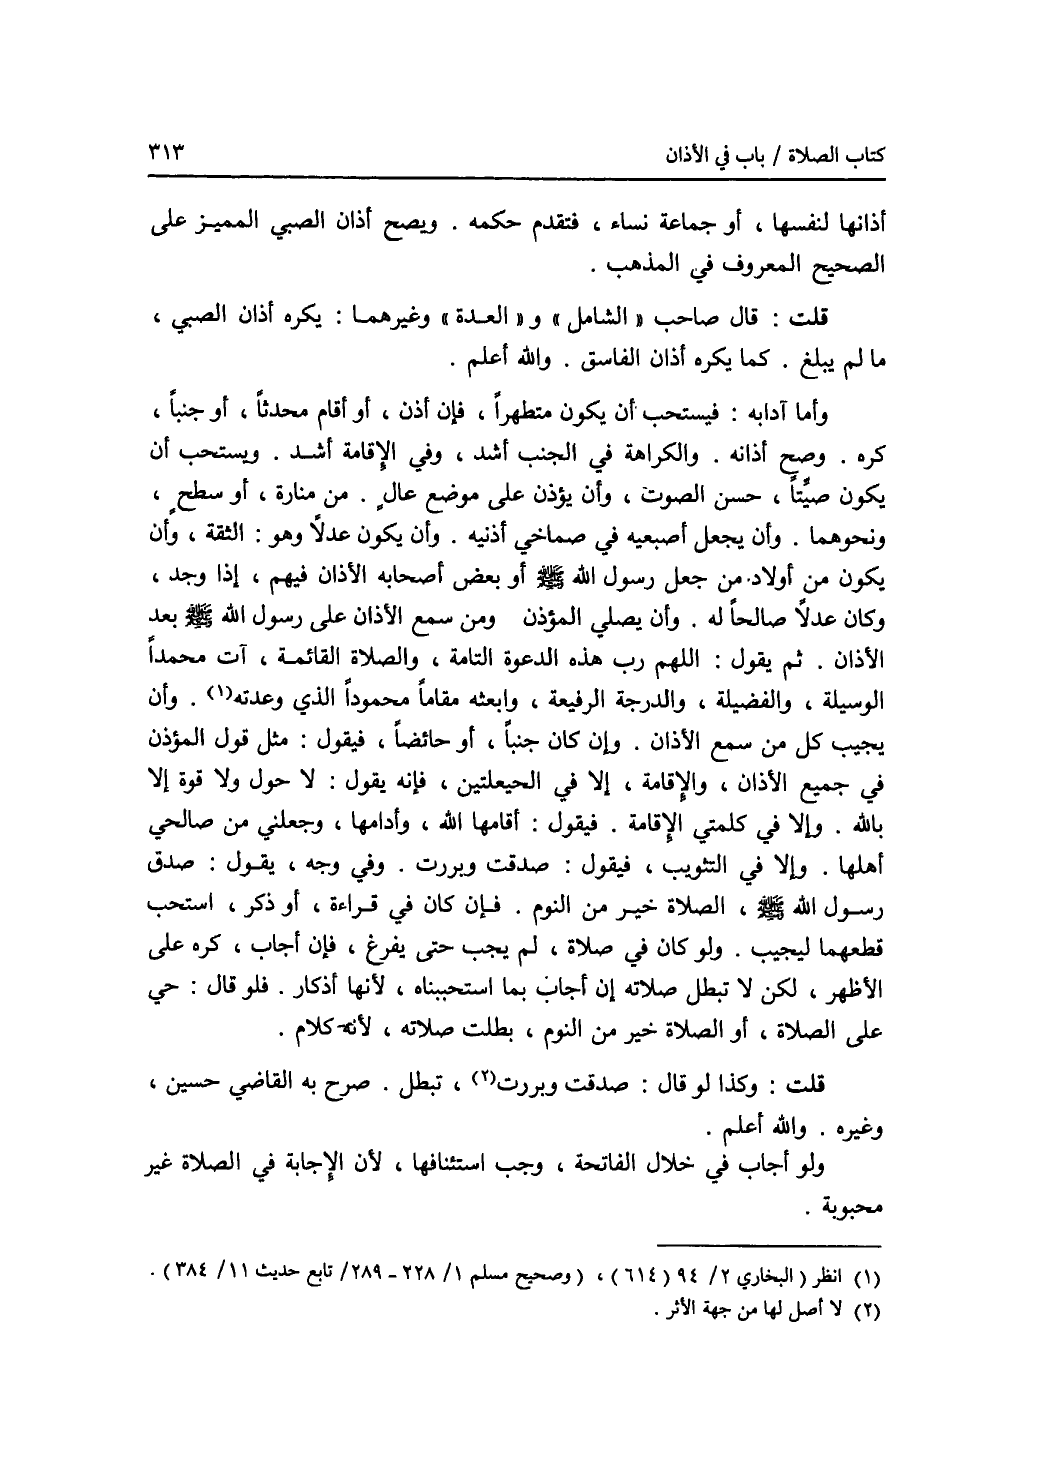 كتاب الصلاة / باب في الأذان ٣١٣
أذانها لنفسها ، أو جماعة نساء ، فتقدم حكمه . ويصح أذان الصبي المميـز على
الصحيح المعروف في المذهب .
قلت : قال صاحب « الشامل » و « العـدة » وغيرهمـا : يكره أذان الصبي ،
ما لم يبلغ . كما يكره أذان الفاسق . والله أعلم .
وأما آدابه : فيستحب أن يكون متطهراً ، فإن أذن ، أو أقام محدثاً ، أو جنباً ،
كره . وصح أذانه . والكراهة في الجنب أشد ، وفي الإقامة أشـد . ويستحب أن
يكون صيِّتاً ، حسن الصوت ، وأن يؤذن على موضع عالٍ . من منارة ، أو سطحٍ ،
ونحوهما . وأن يجعل أصبعيه في صماخي أذنيه . وأن يكون عدلاً وهو : الثقة ، وأن
يكون من أولاد من جعل رسول الله ﷺ أو بعض أصحابه الأذان فيهم ، إذا وجد ،
وكان عدلاً صالحاً له . وأن يصلي المؤذن ومن سمع الأذان على رسول الله ﷺ بعد
الأذان . ثم يقول : اللهم رب هذه الدعوة التامة ، والصلاة القائمـة ، آت محمداً
الوسيلة ، والفضيلة ، والدرجة الرفيعة ، وابعثه مقاماً محموداً الذي وعدته(١) . وأن
يجيب كل من سمع الأذان . وإن كان جنباً ، أو حائضاً ، فيقول : مثل قول المؤذن
في جميع الأذان ، والإقامة ، إلا في الحيعلتين ، فإنه يقول : لا حول ولا قوة إلا
بالله . وإلا في كلمتي الإقامة . فيقول : أقامها الله ، وأدامها ، وجعلني من صالحي
أهلها . وإلا في التثويب ، فيقول : صدقت وبررت . وفي وجه ، يقـول : صدق
رسـول الله ﷺ ، الصلاة خيـر من النوم . فـإن كان في قـراءة ، أو ذكر ، استحب
قطعهما ليجيب . ولو كان في صلاة ، لم يجب حتى يفرغ ، فإن أجاب ، كره على
الأظهر ، لكن لا تبطل صلاته إن أجاب بما استحببناه ، لأنها أذكار . فلو قال : حي
على الصلاة ، أو الصلاة خير من النوم ، بطلت صلاته ، لأنه كلام .
قلت : وكذا لو قال : صدقت وبررت(٢) ، تبطل . صرح به القاضي حسين ،
وغيره . والله أعلم .
ولو أجاب في خلال الفاتحة ، وجب استئنافها ، لأن الإجابة في الصلاة غير
محبوبة .
(١) انظر ( البخاري ٢/ ٩٤ ( ٦١٤ ) ، ( وصحيح مسلم ١/ ٢٢٨ - ٢٨٩/ تابع حديث ١١/ ٣٨٤ ) .
(٢) لا أصل لها من جهة الأثر .